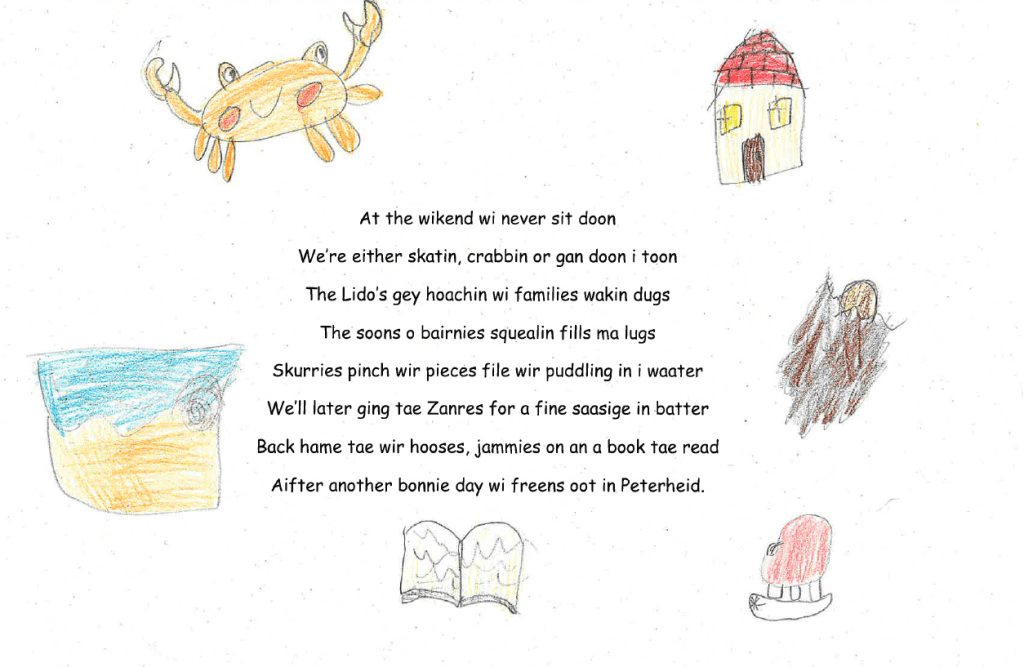 At the wikend wi never sit doon
We're either skatin, crabbin or gan doon i toon
The Lido's gey hoachin wi families wakin dugs
The soons o bairnies squealin fills ma lugs
Skurries pinch wir pieces file wir puddling in i waater
We'll later ging tae Zanres for a fine saasige in batter
Back hame tae wir hooses, jammies on an a book tae read
Aifter another bonnie day wi freens oot in Peterheid.